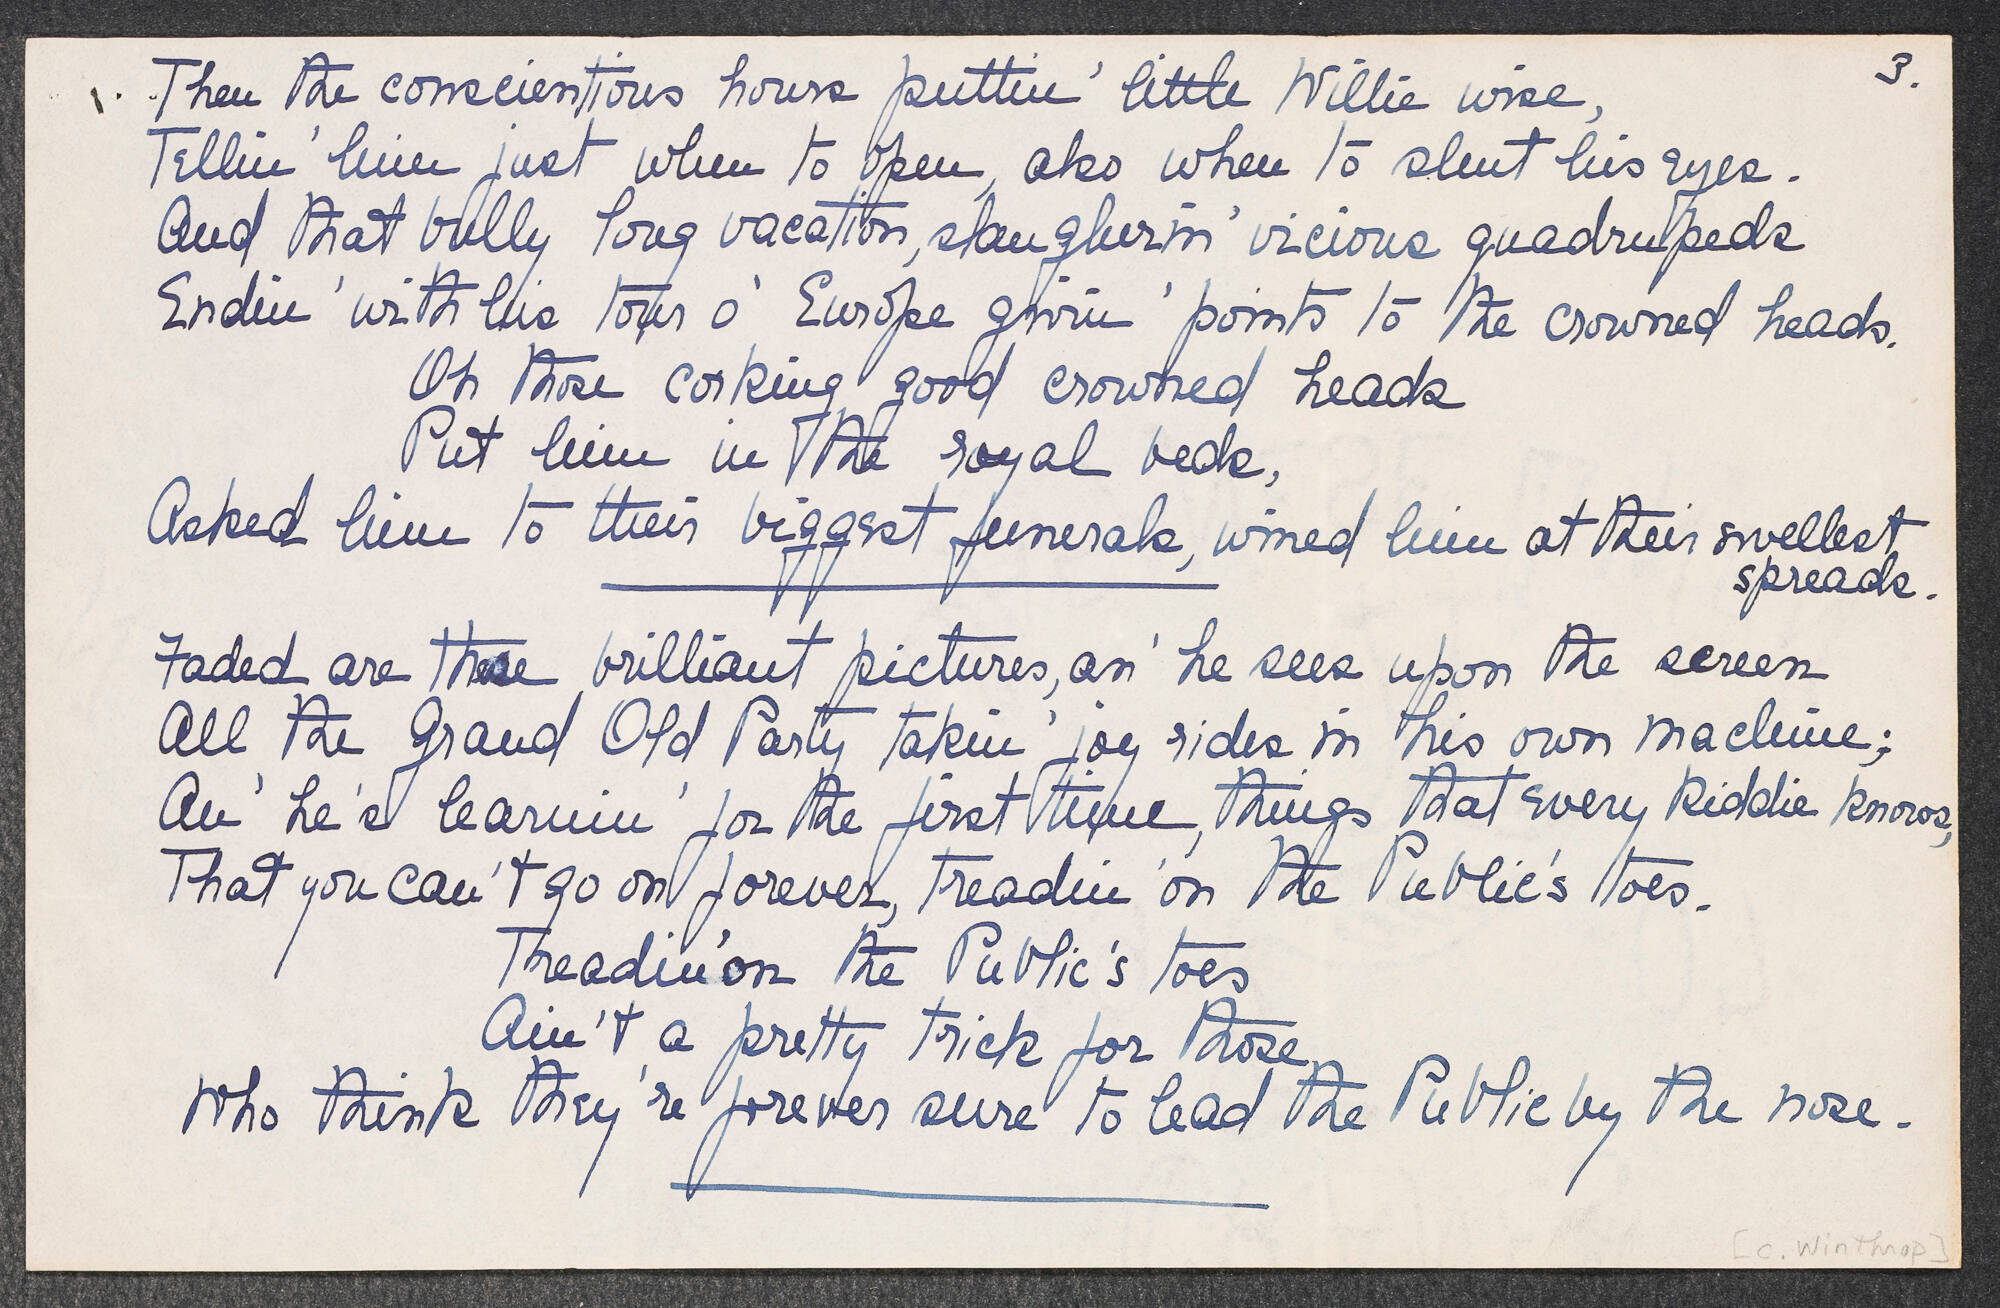 3.
Then the conscientious hours puttin' little Willie wise,
Tellin' him just when to open, also when to shut his eyes.
And that bully long vacation, slaughterin' vicious quadrupeds
Endin' with his tour o' Europe givin' points to the crowned heads.
Oh those corking good crowned heads
Put him in the royal beds,
Asked him to their biggest funerals, wined him at their swellest
spreads.
Faded are these brilliant pictures, an' he sees upon the screen
All the Grand Old Party takin' joy rides in his own machine;
An' he's learnin' for the first time, things that every kiddie knows,
That you can't go on forever, treadin' on the Public's toes.
Treadin' on the Public's toes
Ain't a pretty trick for those
Who think they're forever sure to lead the Public by the nose.
[C. Winthrop]